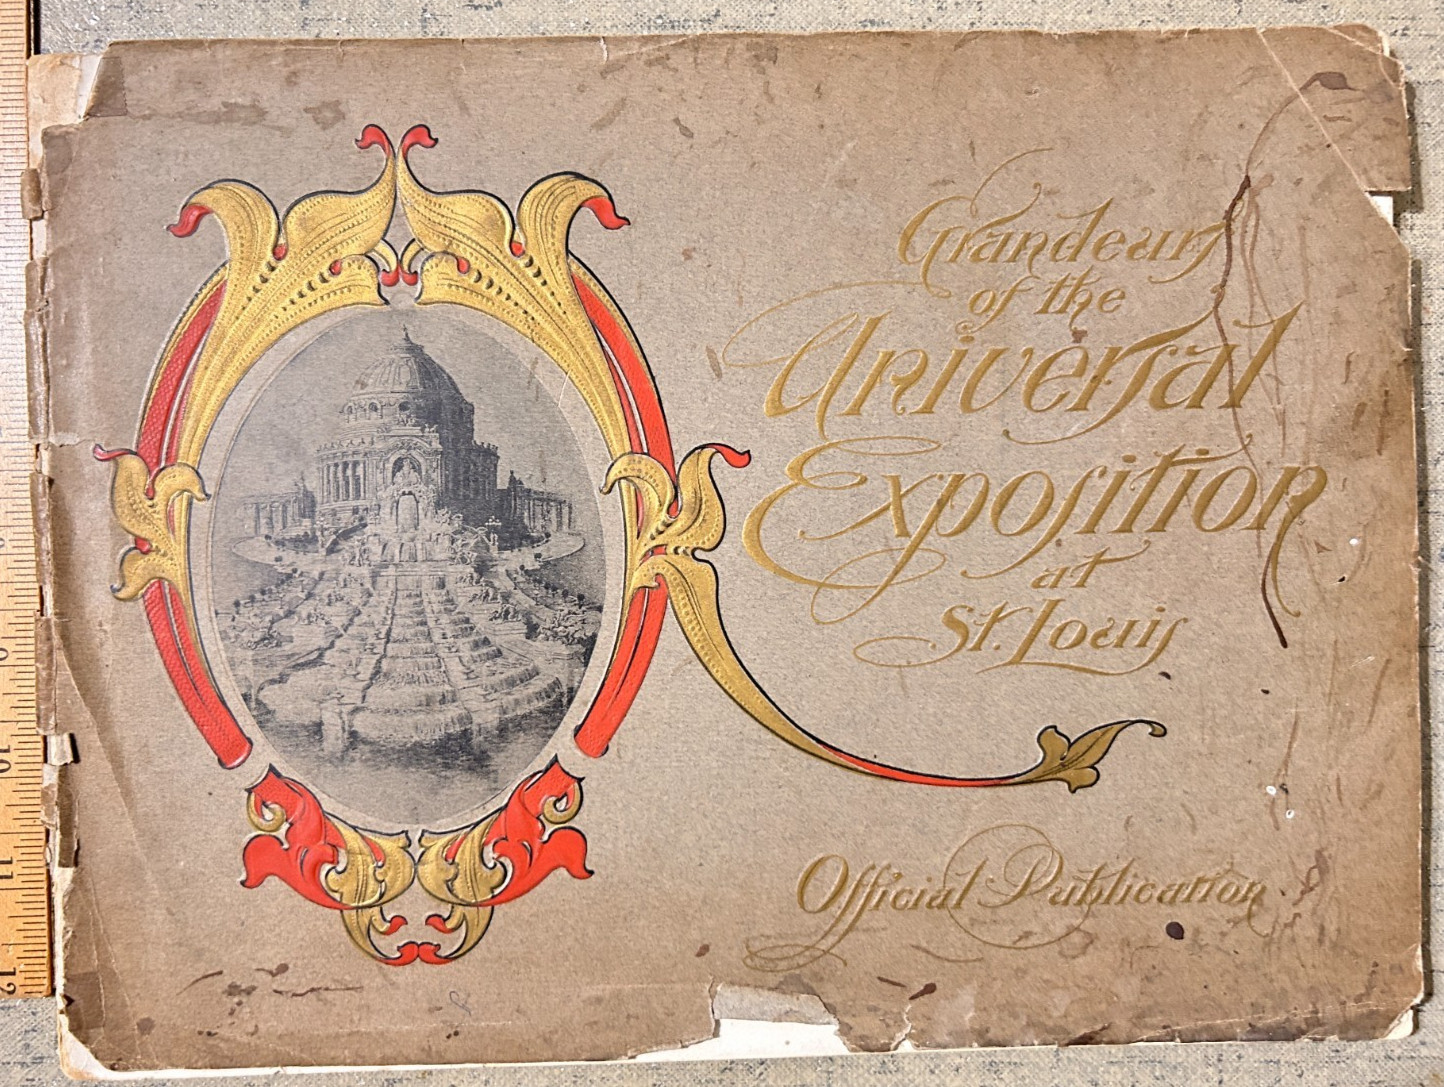 Grandeurs
of the
Universal
Exposition
at
St. Louis
Official Publication
9
10
11
12